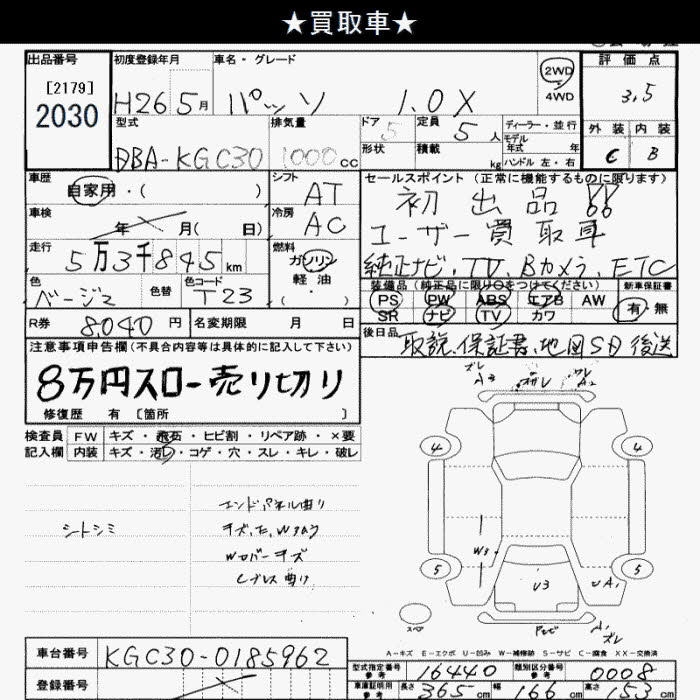 ★買取車★
出品番号
[2179]
2030
初度登録年月
H26 5月
車名・グレード
パッソ 1.0X
2WD
4WD
評価点
3.5
外装 内装
C B
型式
DBA-KGC30
排気量
1000cc
ドア
5
形状
定員
5人
積載
kg
ディーラー・並行
モデル
年式 年
ハンドル 左・右
車歴
自家用・( )
シフト
AT
セールスポイント(正常に機能するものに限ります)
初出品!!
ユーザー買取車
純正ナビ、TV、Bカメラ、ETC
車検
年 月( 日)
冷房
AC
走行
5万3千845km
燃料
ガソリン
軽油
( )
色
ベージュ
色替
色コード
T23
装備品(純正品に限り○をつけてください)
PS PW ABS エアB AW
SR ナビ TV カワ
新車保証書
有・無
R券
8040円
名変期限 月 日
後日品
取説、保証書、地図SD後送
注意事項申告欄(不具合内容等は具体的に記入して下さい)
8万円スロー売り切り
修復歴 有 [箇所 ]
検査員
記入欄
FW キズ・飛石・ヒビ割・リペア跡・×要
内装 キズ・汚れ・コゲ・穴・スレ・キレ・破レ
シートシミ
エンドパネル曲り
W3
U3
UA1
4
4
5
5
スペア
A1
ズレ
A-キズ E-エクボ U-凹み W-補修跡 S-サビ C-腐食 XX-交換済
車台番号
KGC30-0185962
登録番号
型式指定番号
参考
16440
類別区分番号
参考
0008
車庫証明用
参考
長さ 365cm 幅 166cm 高さ 153cm